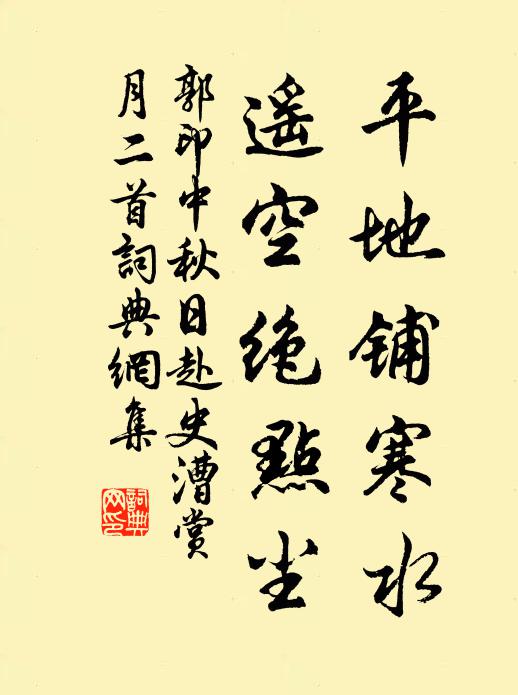 平地铺寒水
遥空绝點尘
郭印中秋日赴史漕赏
月二首詞典網集
詞典
网印